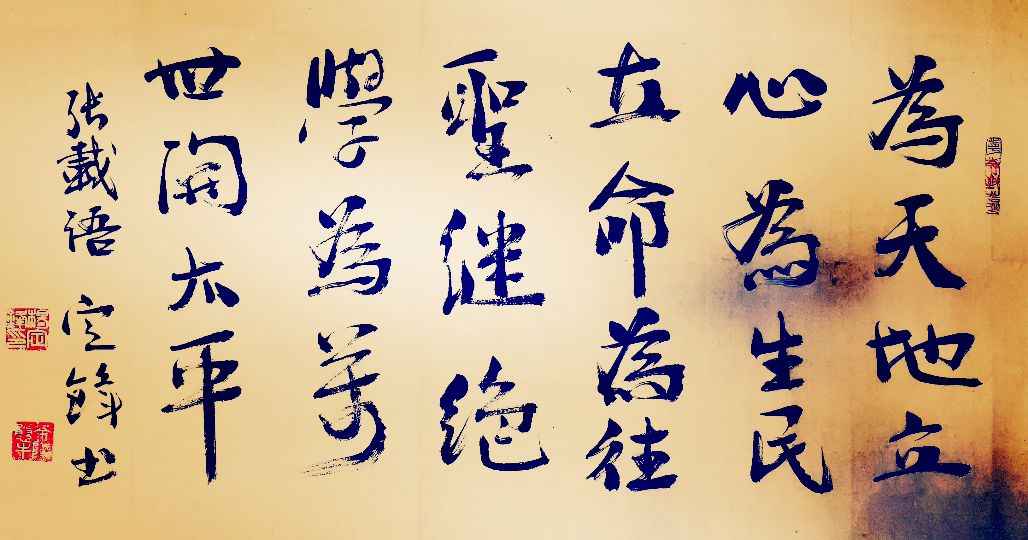 為天地立
心為生民
立命為往
聖继绝
學為萬
世開太平
张載语 定鋒书